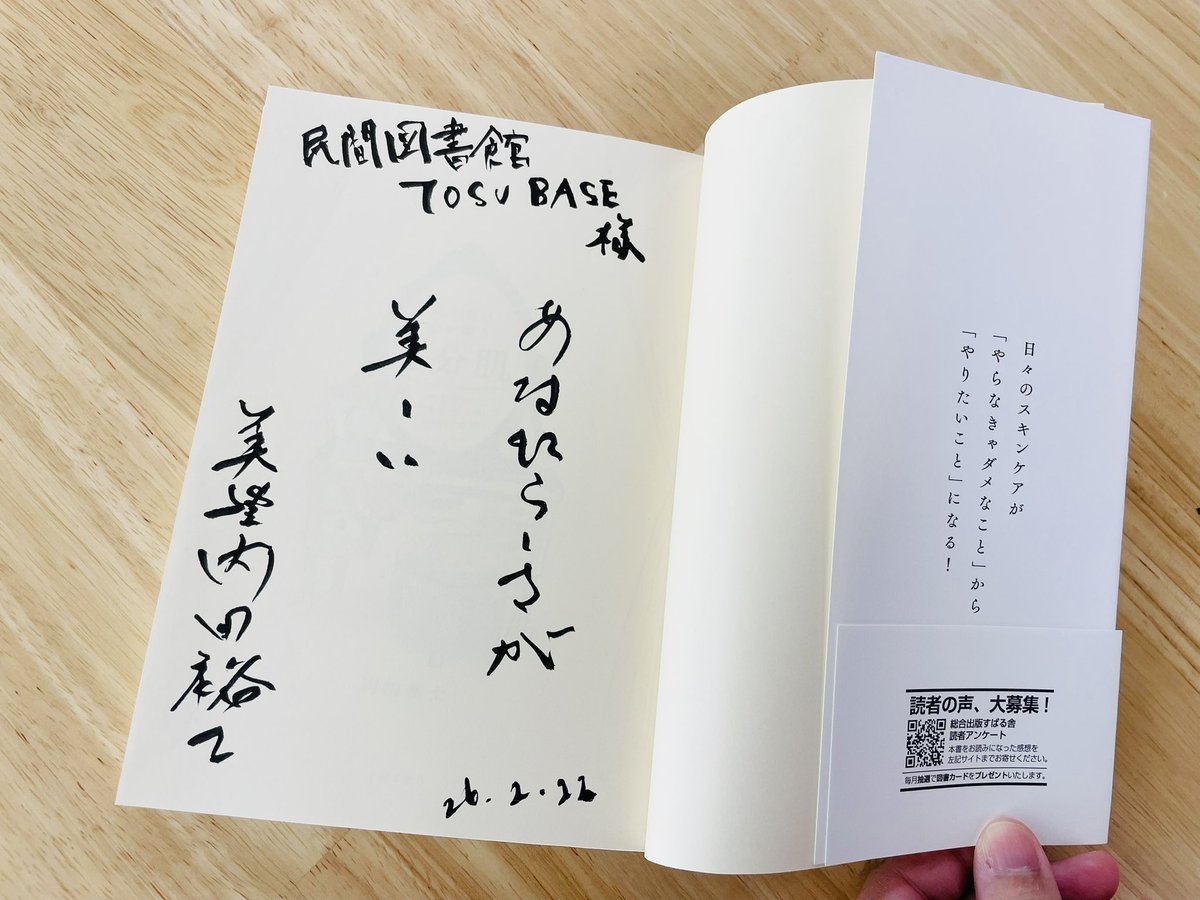 民間図書館
TOSU BASE
様
あなたらしさが
美しい
美塾内田裕士
26.2.22
日々のスキンケアが
「やらなきゃダメなこと」から
「やりたいこと」になる！
読者の声、大募集！
総合出版すばる舎
読者アンケート
本書をお読みになった感想を
左記サイトまでお寄せください。
毎月抽選で図書カードをプレゼントいたします。